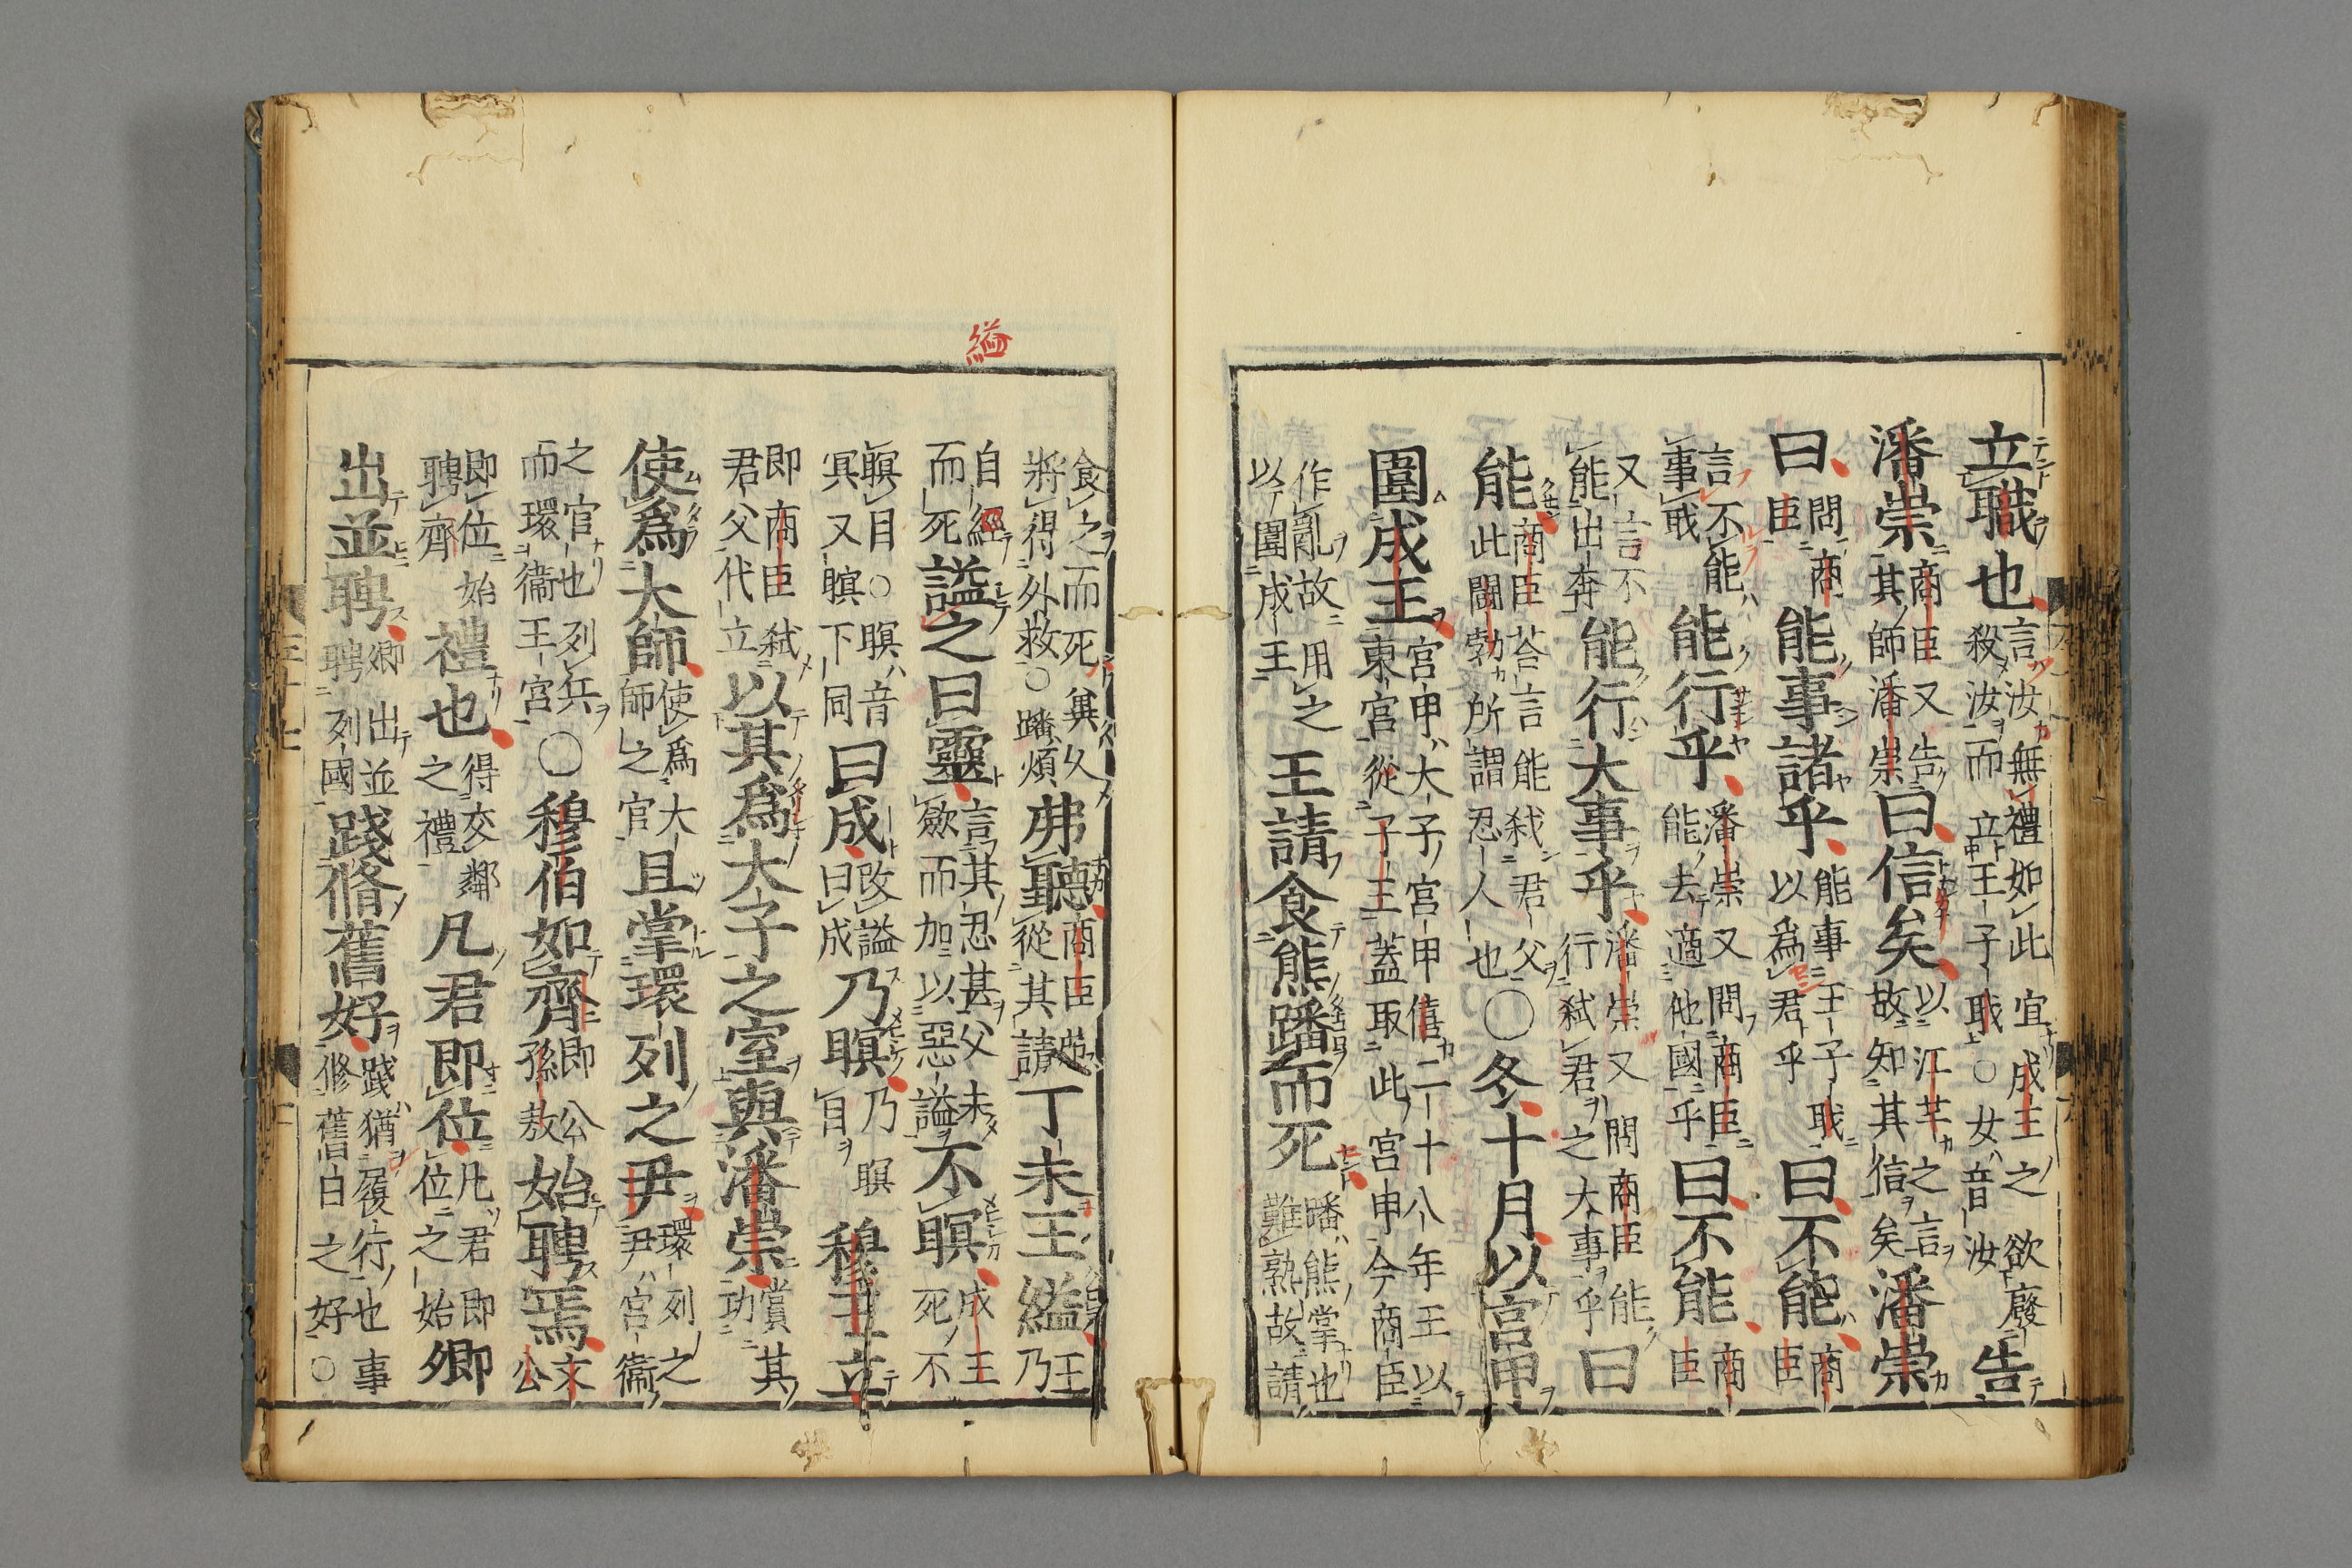 立職也言汝無禮如此宜成王之欲廢殺汝而立王子職○女音汝告
潘崇商臣又告其師潘崇曰信矣以江芊之言故知其信矣潘崇
曰問商臣能事諸乎能事王子職以爲君乎曰不能商臣
言不能事職能行乎潘崇又問商臣能去適他國乎曰不能商臣
又言不能出奔能行大事乎潘崇又問商臣能行弒君之大事乎曰
能商臣荅言能弒君父此鬪勃所謂忍人也○冬十月以宮甲
圍成王宮甲大子宮甲僖二十八年王以東宮從子玉蓋取此宮甲今商臣
作亂故用之以圍成王王請食熊蹯而死蹯熊掌也難熟故請
縊
食之而死兾久將得外救○蹯煩弗聽商臣弗從其請丁未王縊王乃
自經而死謚之曰靈言其忍甚父未歛而加以惡謚不瞑成王死不
瞑目○瞑音冥又瞑下同曰成改謚曰成乃瞑乃瞑目穆王立
即商臣弒君父代立以其爲大子之室與潘崇賞其功
使爲太師使爲大師之官且掌環列之尹環列之尹宮衞
之官也列兵而環衞王宮○穆伯如齊即公孫敖始聘焉文公
即位始聘齊禮也得交鄰之禮凡君即位凡君即位之始卿
出並聘卿出並聘列國踐脩舊好踐猶履行也事脩舊日之好○